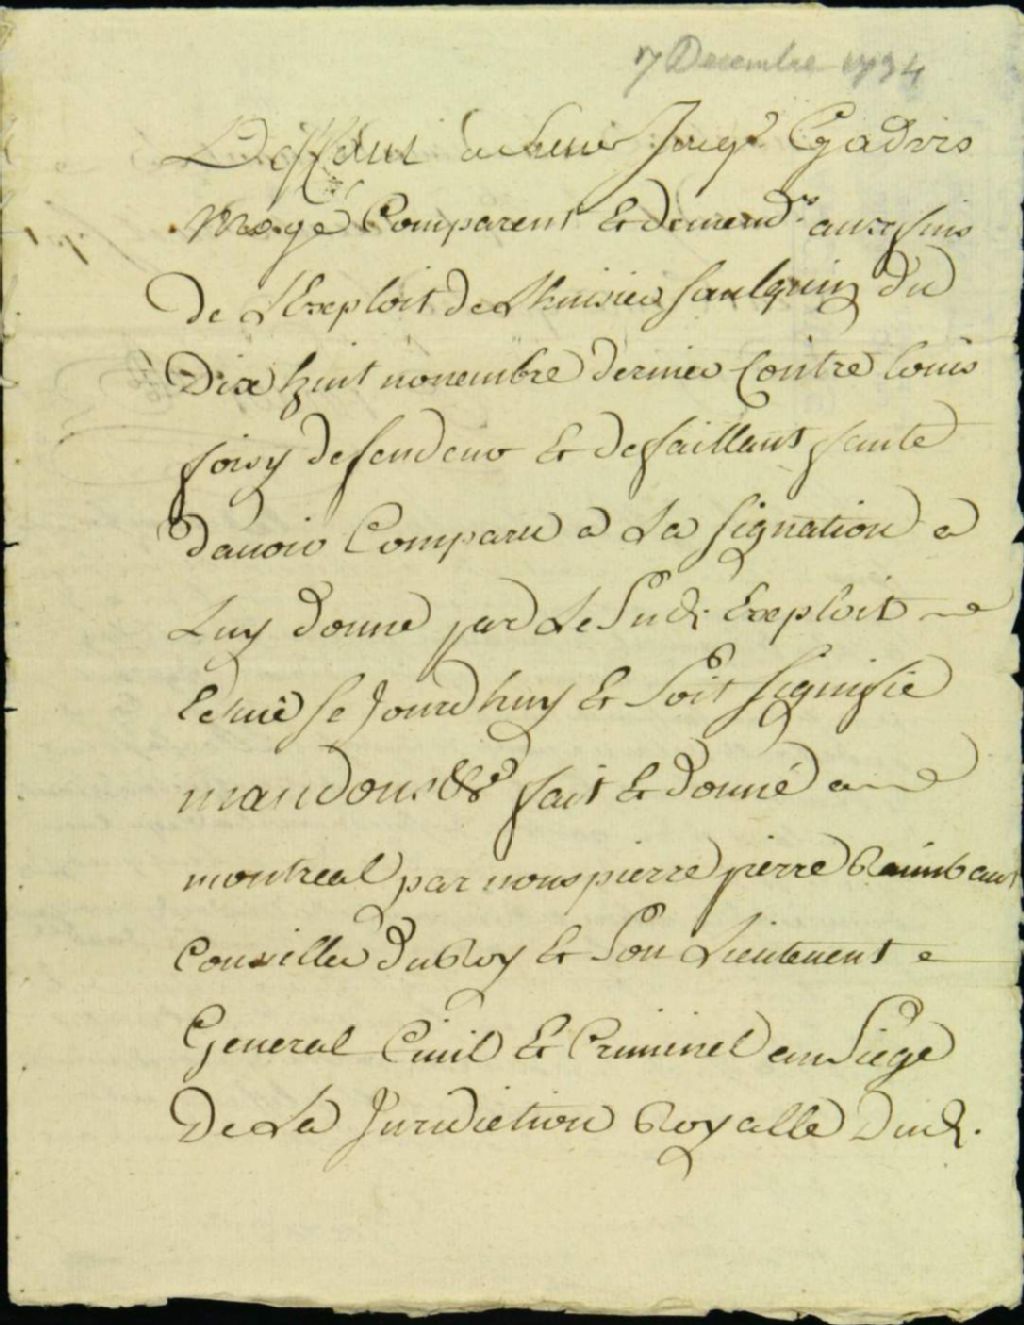 17 Decembre 1734
Deffaut a Sieur Joseph Gadois
Mogé Comparent Et demend.r aux fins
de L'Exploit de Lhuisier Saulquin du
Dix huit novembre dernier Contre louis
foisy defendeur Et defaillant faute
davoir Comparu a La signation a
Luy donne par Le Sud. Exploit
Echue se Jourdhuy Et Soit signifié
mandons &c fait Et donné a
montreal par nous pierre pierre Raimbaut
Conseiller du Roy Et Son Lieutenent
General Civil Et Criminel au Siege
De La Juridiction Royalle Dud.